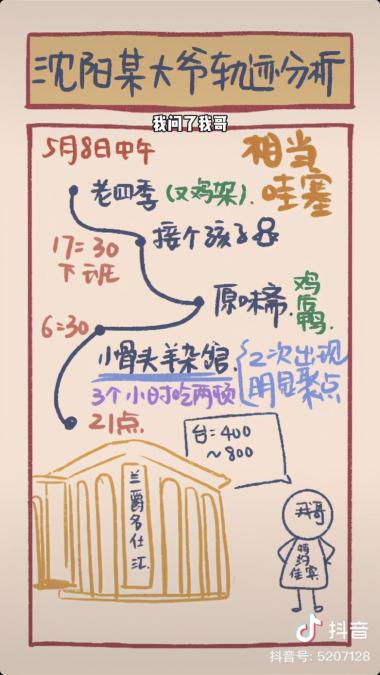 沈阳某大爷轨迹分析
我问了我哥
5月8日中午
相当
哇塞
老四季(又鸡架).
17:30
下班
接个孩子
原味斋.
鸡
后
鸭.
6:30
小骨头羊杂馆.
2次出现
明显聚点
3个小时吃两顿
21点.
台:400
~800
兰爵名仕汇.
我哥
特约
佳宾
抖音
抖音号: 5207128